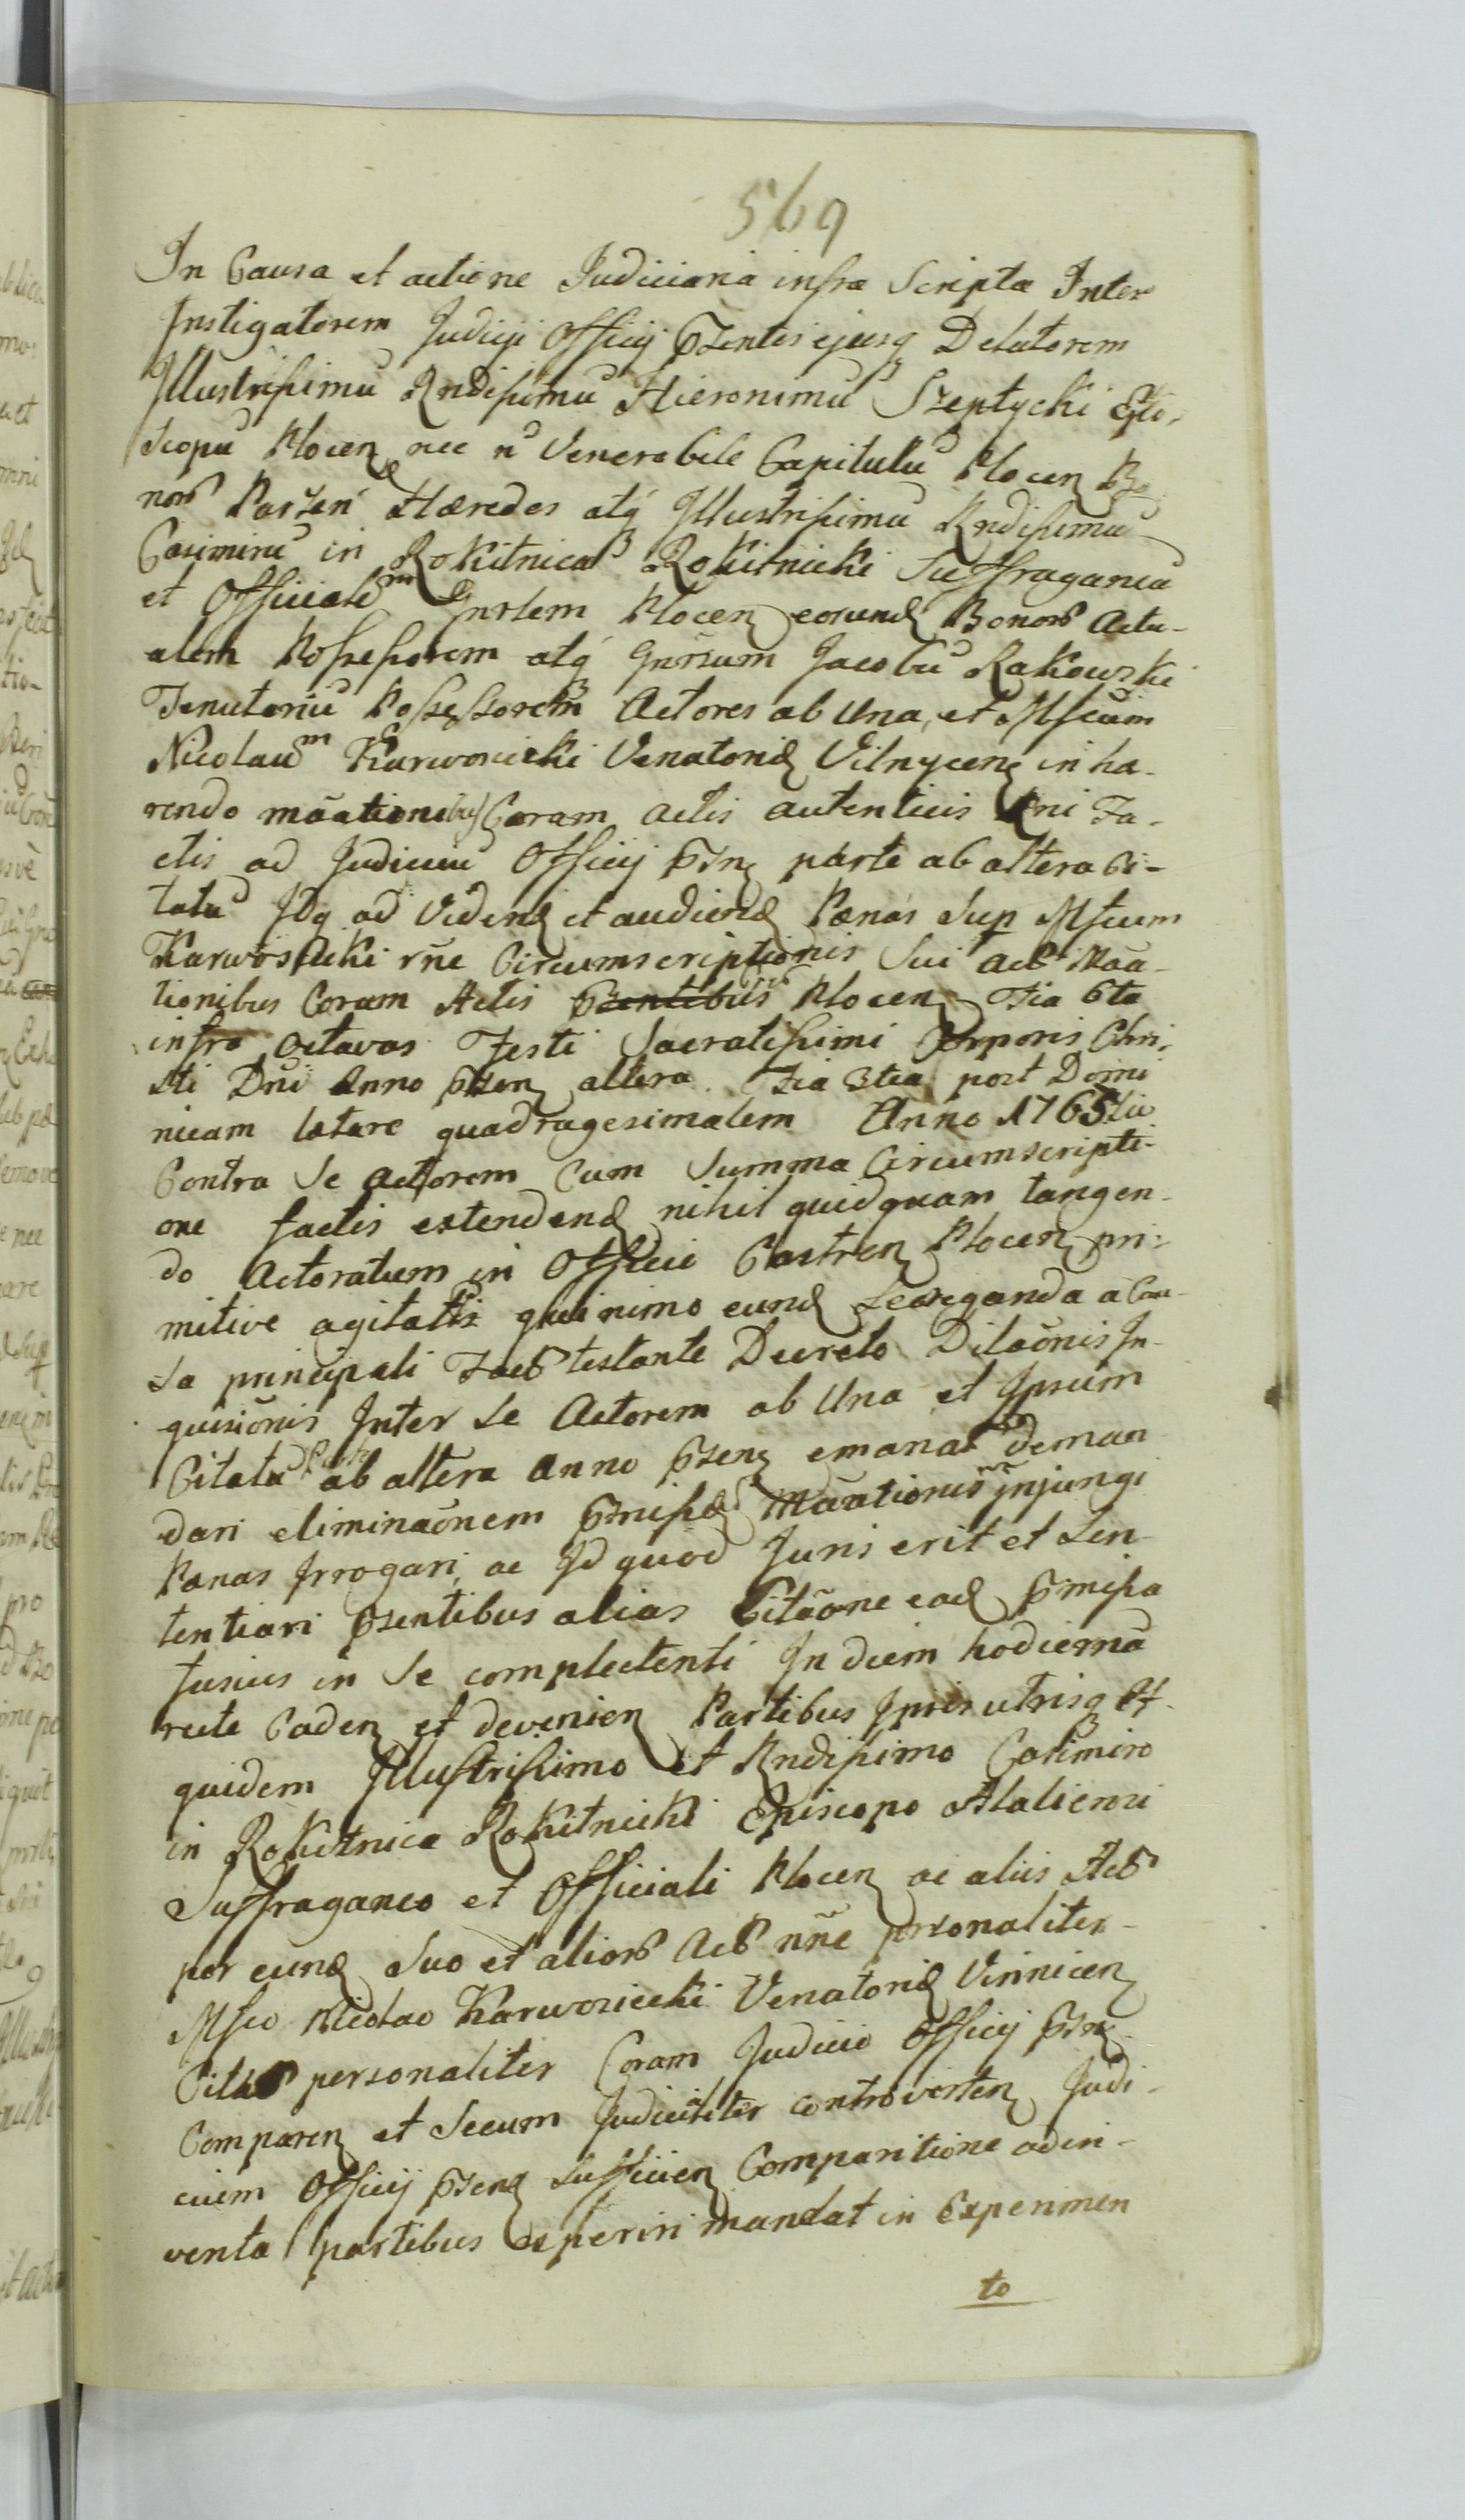 569
In Causa et actione Judiciaria infra Scripta Inter
Instigatorem Judicÿ Officÿ Pzentis ejusq Delatorem
Illustrissimū Rndissimū Hieronimū Szeptycki Epi-
scopū Plocen nec n Venerabile Capitulū Plocen Bo
norb Parzen Hæredes atq Illustrissimū Rndissimū
Casimirū in Rokitnica Rokitnicki Suffraganeū
et Officialem Gnrlem Plocen eorund Bonorb Actu-
alem Possessorem atq Gnrsum Jacobū Rakowski
Tenutariū Possessorem Actores ab Una, et Mfcum
Nicolaum Karwosiecki Venatorid Vilnycen inhæ-
rendo mãationibus Coram actis autenticis Rni Fa-
ctis ad Judicium Officÿ Pzn parte ab altera Ci-
tatū Idq ad Videnđ et audienđ Pænas Sup Mfcum
Karwosiecki rñe Circumscriptionis Sui Actb Mãa-
tionibus Coram Actis Pzentibus Plocen Fia 6ta
infra Octavas Festi Sacratissimi Corporis Chri-
sti Dni Anno Pzen altera Fia 3tia post Domi
nicam lætare quadragesimalem Anno 1765to
Contra Se actorem Cum Summa Circumscripti-
one factis extendend nihil quidquam tangen-
do Actoratum in Officio Castren Plocen pri-
mitive agitatū quinimo eund Segreganda a Cau-
sa principali Factb testante Decreto Dilaõnis In-
quisiõnis Inter Se Actorem ab Una et Ipsum
Citatū Parte ab altera Anno Pzen emanat deman
dari eliminaõnem Pmissæ Mãationis injungi
Pænas Irrogari, ac Id quod Juris erit et Sen-
tentiari Pzentibus alias Citãone ead Pmissa
fusius in Se complectenti In diem hodiernã
recte Caden et devenien Partibus Ipsis utrisq Et
quidem Illustrissimo et Rndissimo Casimiro
in Rokitnica Rokitnicki Episcopo Halicensi
Suffraganeo et Officiali Plocen ac aliis Actb
per eund Suo et aliorb Actb nñe personaliter
Mfco Nicolao Karwosiecki Venatorid Vinnicen
Citatb personaliter Coram Judicio Officÿ Pzn
Comparen et Secum Judicialiter controverten Judi-
cium Officÿ Pzens Sufficien Comparitione adin-
venta partibus experiri mandat in Experimen
to